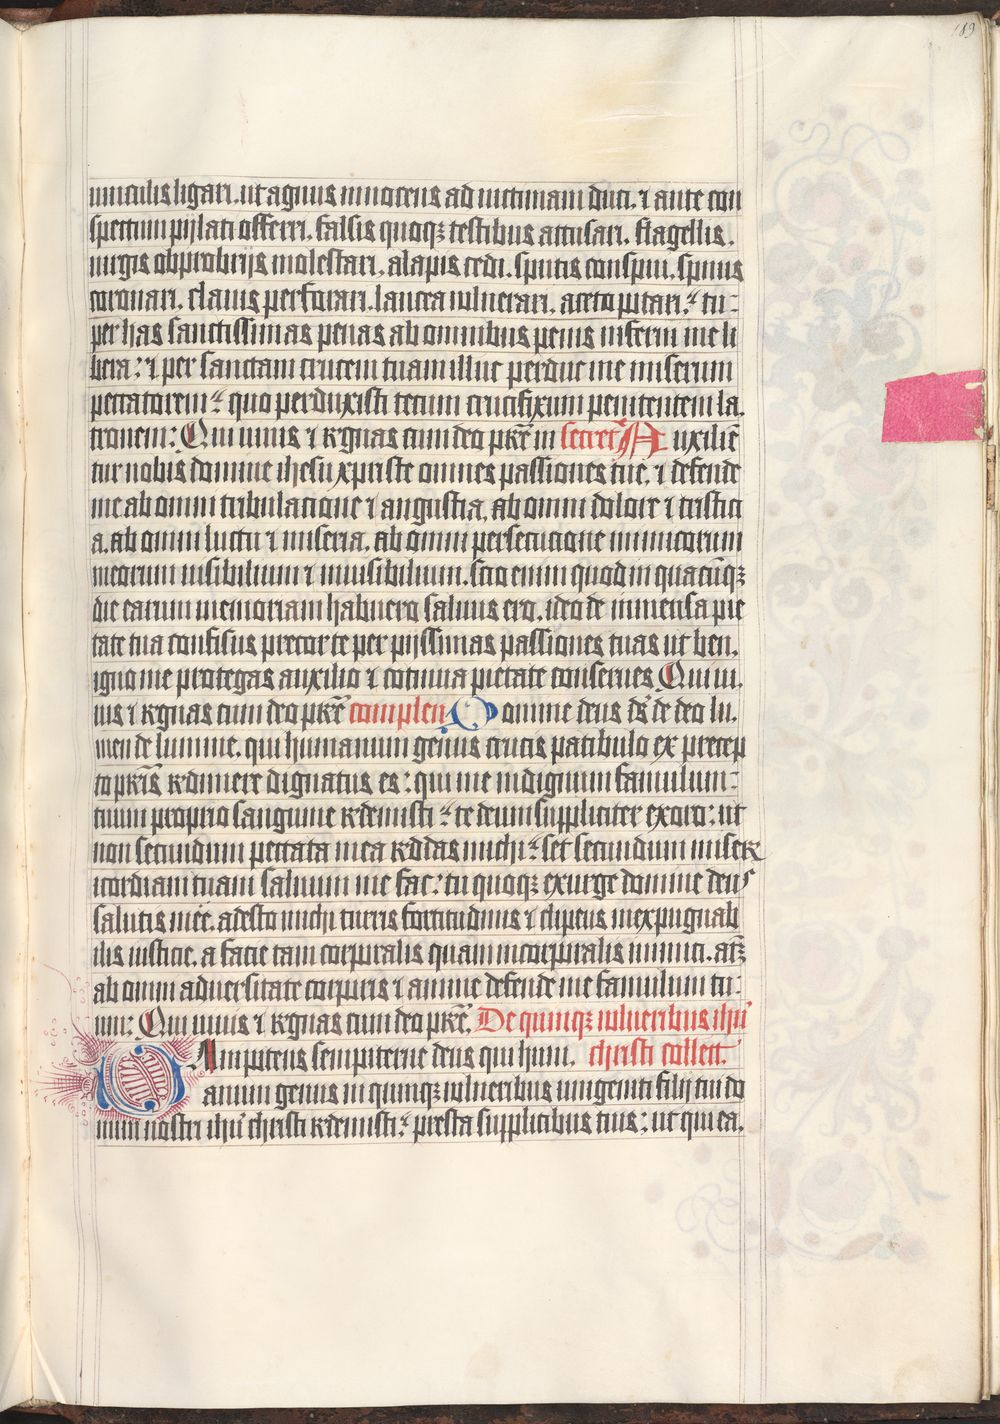 189
uinculis ligari. ut agnus innocens ad uictimam duci. ⁊ ante con
spectum pylati offerri. falsis quoqꝫ testibus accusari. flagellis.
uirgis obprobrijs molestari. alapis cedi. sputis conspui. spinis
coronari. clauis perforari. lancea uulnerari. aceto potari. tu
per has sanctissimas penas ab omnibus penis inferni me li
bera: ⁊ per sanctam crucem tuam illuc perduc me miserum
peccatorem quo perduxisti tecum crucifixum penitentem la.
tronem: Qui uiuis ⁊ regnas cum deo pr̄e in secret̄ Auxilien̄
tur nobis domine ihesu xpriste omnes passiones tue. ⁊ defende
me ab omni tribulatione ⁊ angustia. ab omni dolore ⁊ tristici
a. ab omni luctu ⁊ miseria. ab omni persecutione inimicorum
meorum uisibilium ⁊ inuisibilium. scio enim quod in quacūqꝫ
die earum memoriam habuero saluus ero. ideo de immensa pie
tate tua confisus precor te per pijssimas passiones tuas ut ben.
igno me protegas auxilio ⁊ cōtinua pietate conserues Qui ui.
uis ⁊ regnas cum deo pr̄e complen Domine deus d̄s de deo lu.
men de lumine. qui humanum genus crucis patibulo ex precep
to pr̄is redimere dignatus es: qui me indignum famulum
tuum proprio sanguine redemisti te deum suppliciter exoro: ut
non secundum peccata mea reddas michi: set secundum miser
icordiam tuam saluum me fac: tu quoqꝫ exurge domine deus
salutis mee. adesto michi turris fortitudinis ⁊ clipeus inexpugnab
ilis iusticie. a facie tam corporalis quam incorporalis inimici. atqꝫ
ab omni aduersitate corporis ⁊ anime defende me famulum tu
um: Qui uiuis ⁊ regnas cum deo pr̄e. De quinqꝫ uulneribus ihū
Omnipotens sempiterne deus qui hum. christi collect.
anum genus in quinqꝫ uulneribus unigeniti filij tui do
mini nostri ihū christi redemisti: presta supplicibus tuis: ut qui ea.